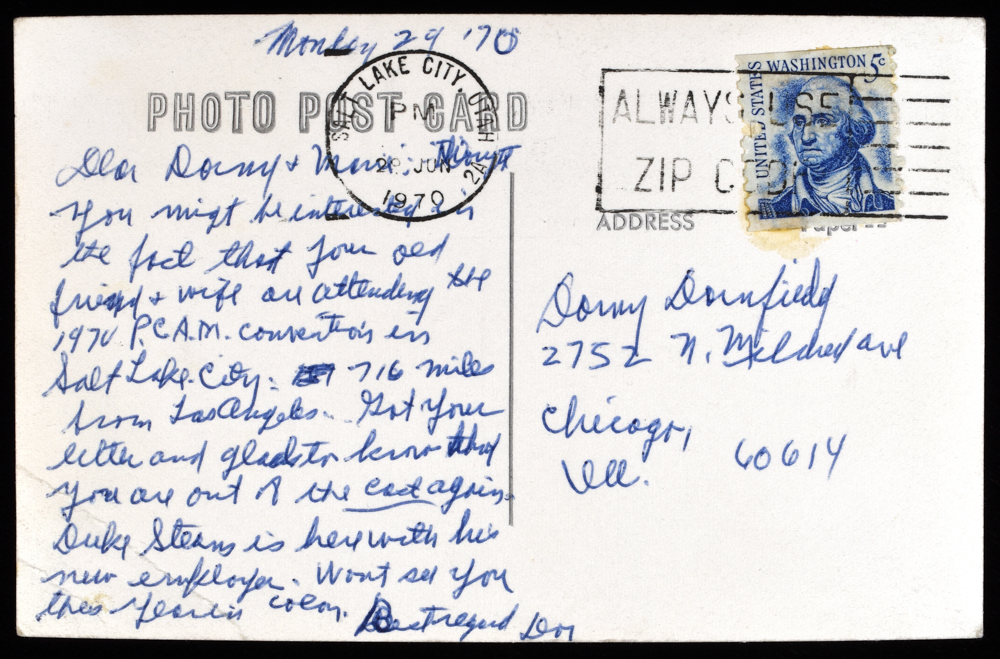 Monday 29 '70
PHOTO POST CARD
SALT LAKE CITY, UTAH
PM
29 JUN
1970
2A
ALWAYS USE
ZIP CODE
UNITED STATES
WASHINGTON 5c
ADDRESS
Paper
Dear Danny & Marie: Thought
you might be interested in
the fact that your old
friend & wife are attending the
1970 P.C.A.M. convention in
Salt Lake City. 716 miles
from Los Angeles. Got your
letter and glad to know that
you are out of the cast again.
Duke Stearns is here with his
new employer. Wont see you
this year in Colon. Best regard
Danny Dornfield
2752 N. Mildred ave
Chicago,
Ill. 60614